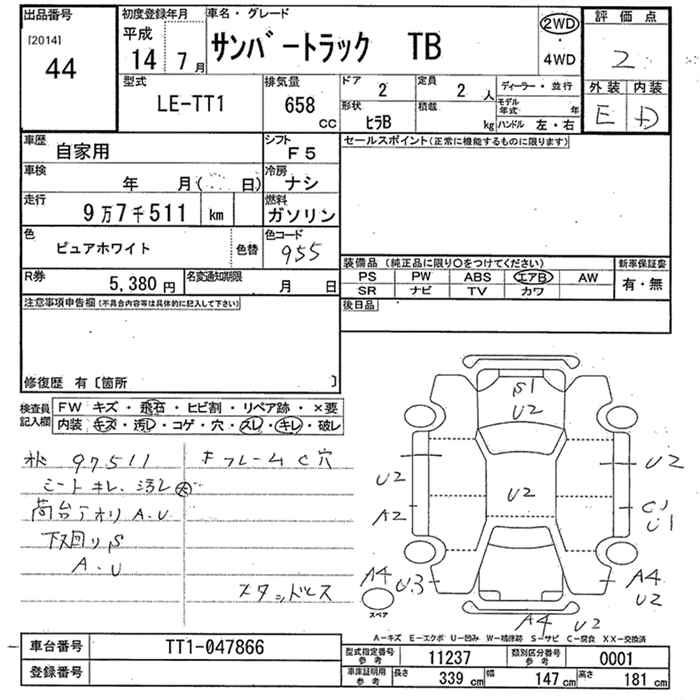 出品番号 初度登録年月 車名・グレード 2WD 評価点
[2014] 平成
44 14 7月 サンバートラック TB 4WD 2
型式 排気量 ドア 定員 ディーラー・並行 外装 内装
LE-TT1 658 cc 2 2人 モデル年式 年 E D
形状 積載 ハンドル 左・右
ヒラB kg
車歴 シフト セールスポイント(正常に機能するものに限ります)
自家用 F5
車検 冷房
年 月( 日) ナシ
走行 燃料
9万7千511 km ガソリン
色 色コード
ピュアホワイト 色替 955
装備品(純正品に限り○をつけてください) 新車保証書
PS PW ABS エアB AW 有・無
SR ナビ TV カワ
R券 5,380円 名変通知期限 月 日
後日品
注意事項申告欄(不具合内容等は具体的に記入して下さい)
修復歴 有〔箇所 〕
検査員記入欄 FW キズ・飛石・ヒビ割・リペア跡・×要
内装・キズ・汚レ・コゲ・穴・スレ・キレ・破レ
97511 キフレームC穴
シートキレ、汚レ大
荷台アオリA、U
下回りS
A、U
スタッドレス
S1
U2
U2
U2
U2
A2
C1
U1
A4 U3
スペア
A4
U2
A4 U2
A-キズ E-エクボ U-凹み W-補修跡 S-サビ C-腐食 XX-交換済
車台番号 TT1-047866
登録番号
型式指定番号参考 11237 類別区分番号参考 0001
車庫証明用参考 長さ 339cm 幅 147cm 高さ 181cm